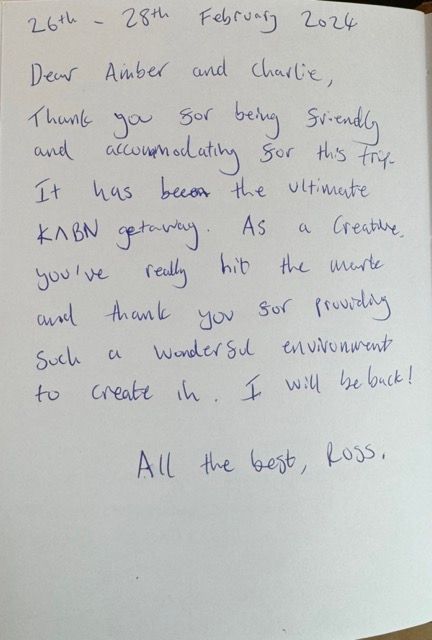 26th - 28th February 2024
Dear Amber and Charlie,
Thank you for being friendly
and accommodating for this trip.
It has been the ultimate
KΛBN getaway. As a Creative,
you've really hit the mark
and thank you for providing
such a wonderful environment
to create in. I will be back!
All the best, Ross.